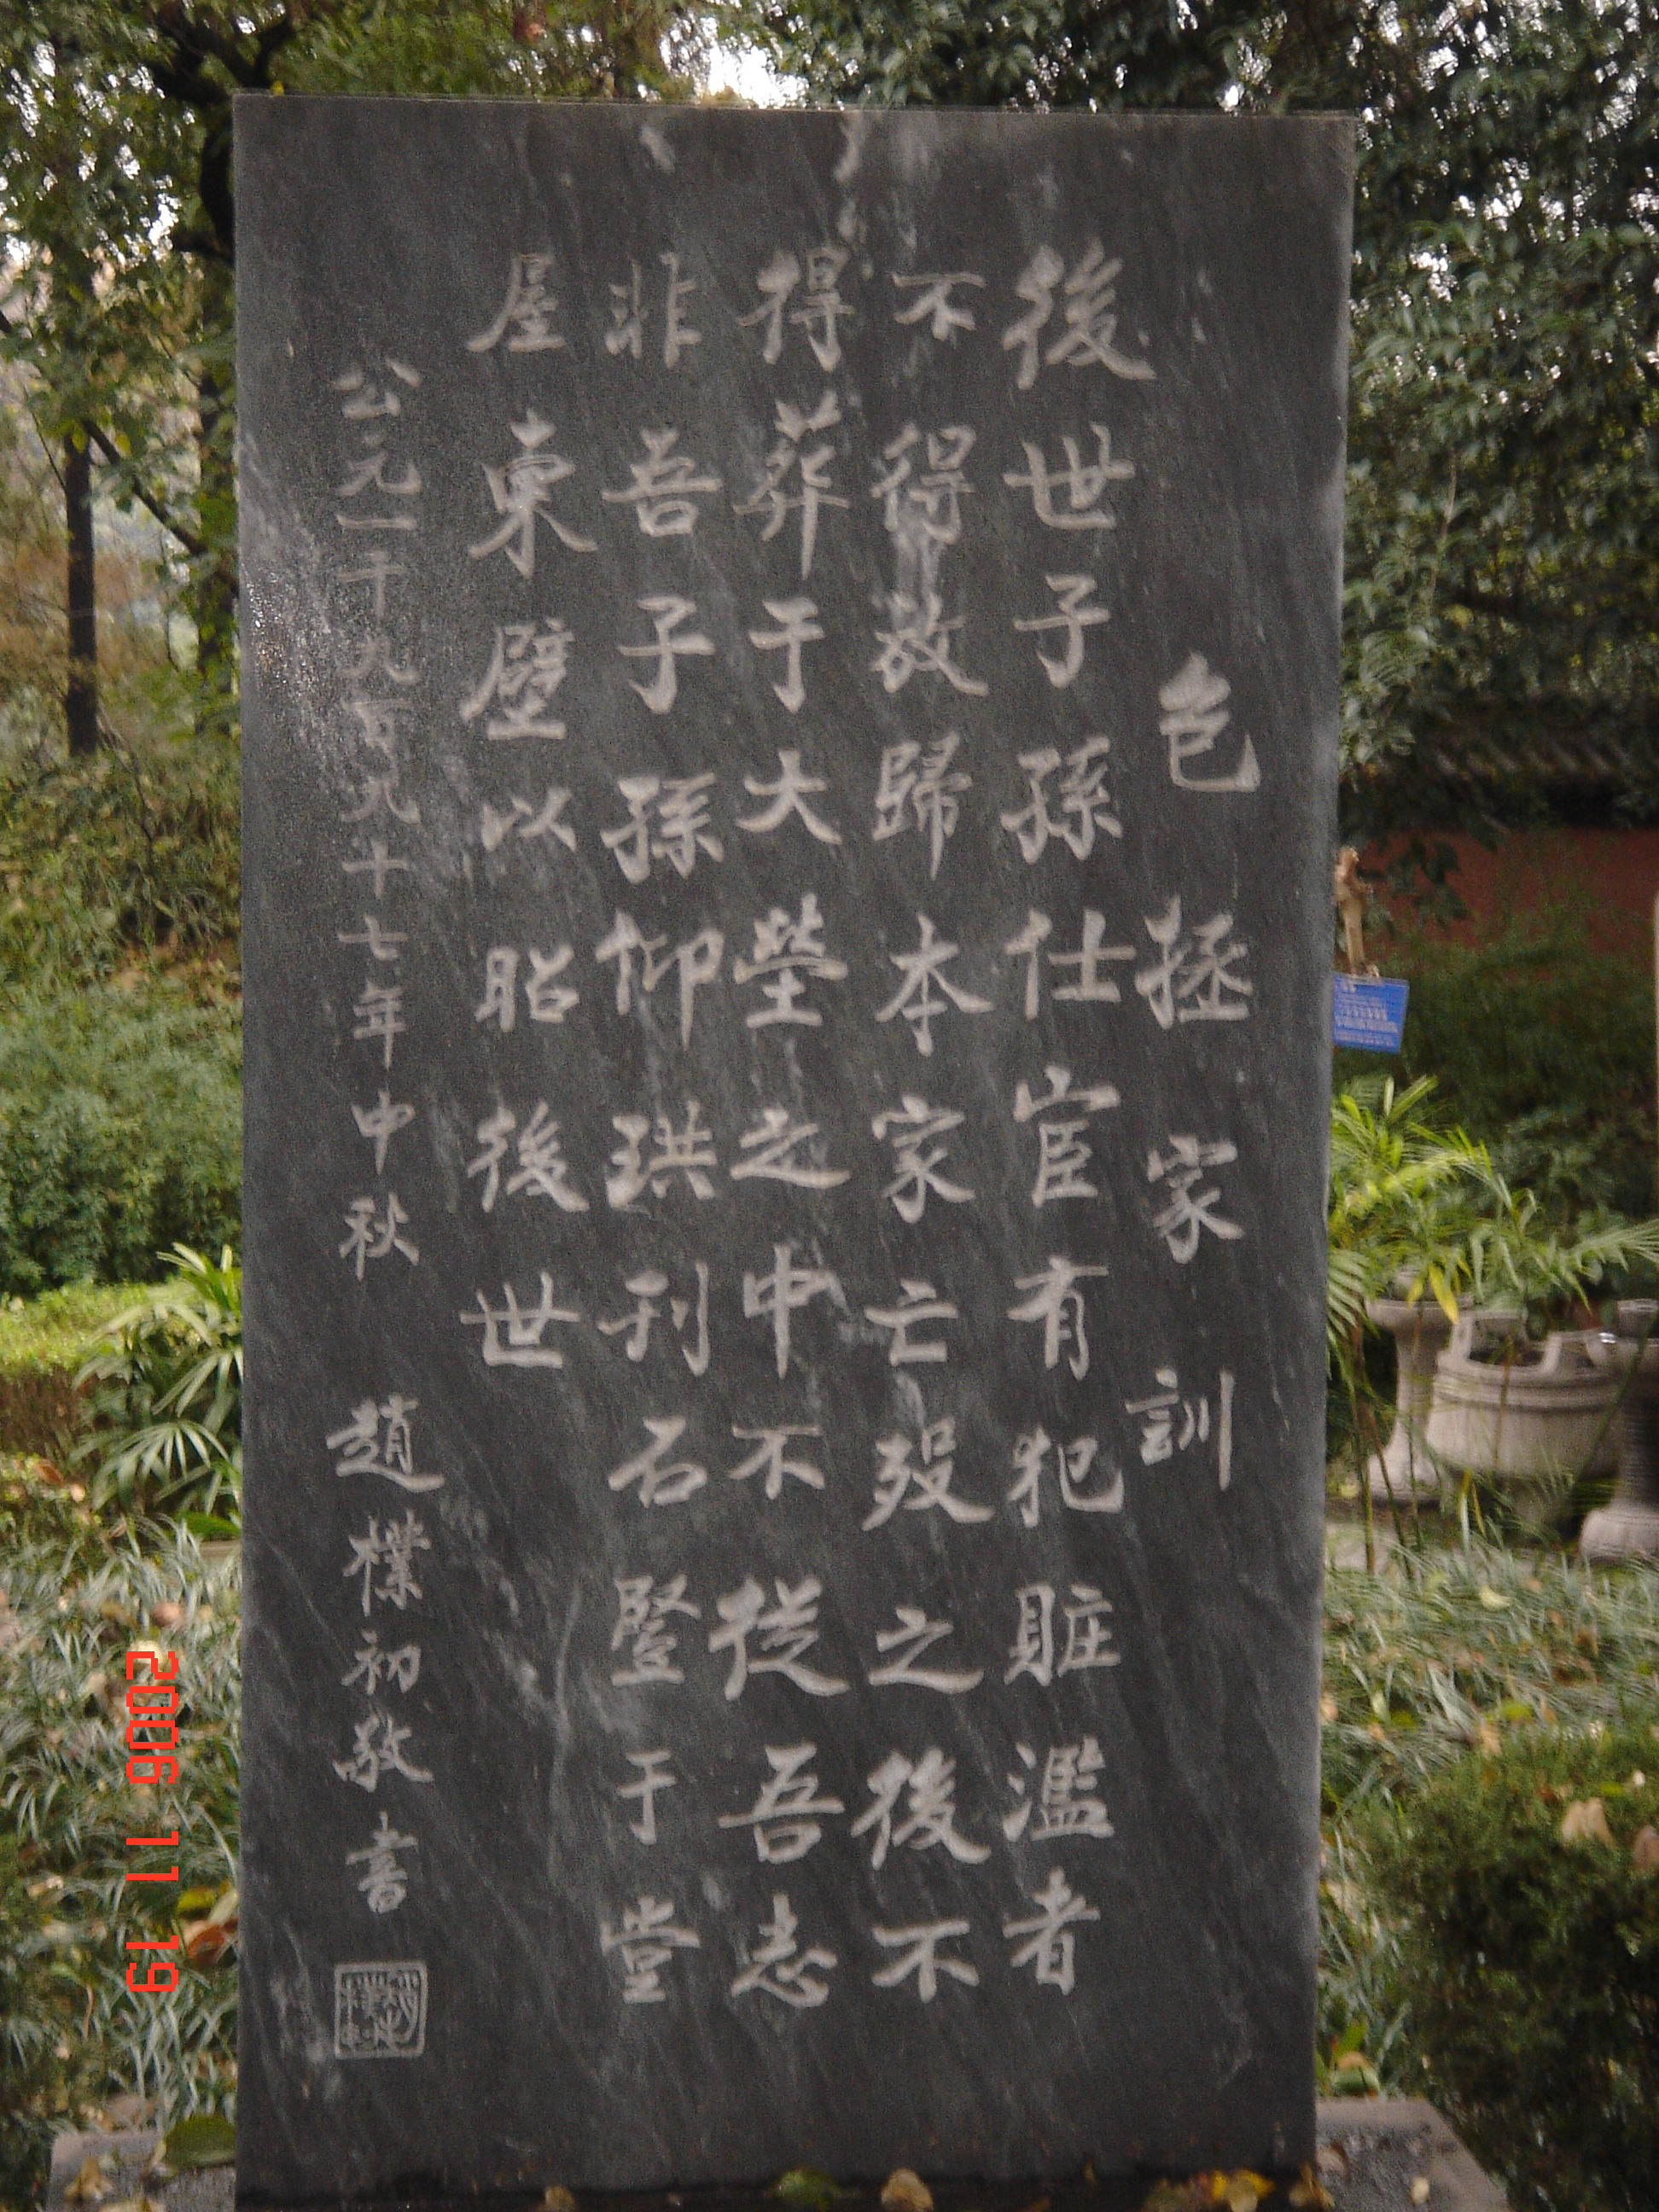 包拯家訓
後世子孫仕宦有犯賍濫者
不得放歸本家亡歿之後不
得葬于大塋之中不從吾志
非吾子孫仰珙刊石豎于堂
屋東壁以昭後世
公元一千九百九十七年中秋 趙樸初敬書
2006 11 19